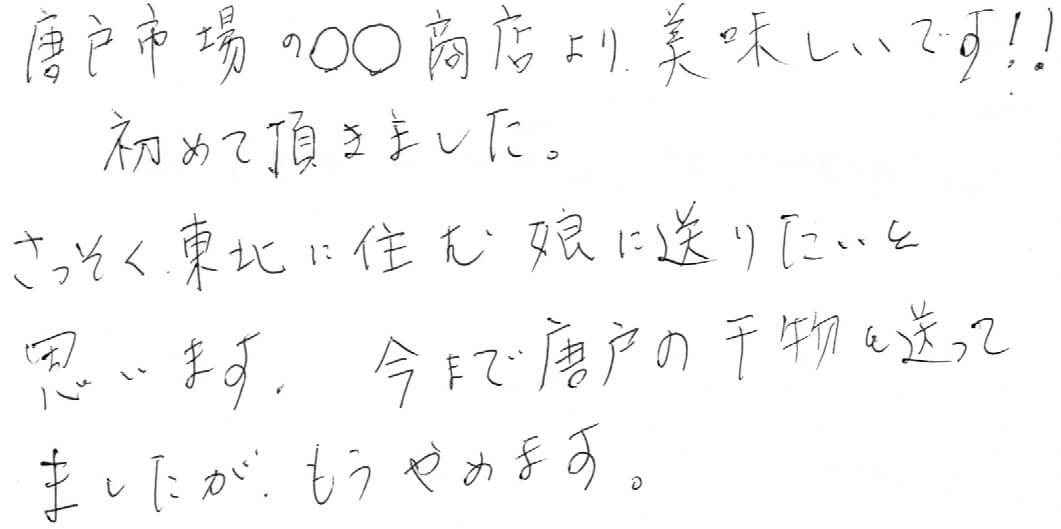 唐戸市場の○○商店より、美味しいです!!
初めて頂きました。
さっそく、東北に住む娘に送りたいと
思います。今まで唐戸の干物を送って
ましたが、もうやめます。